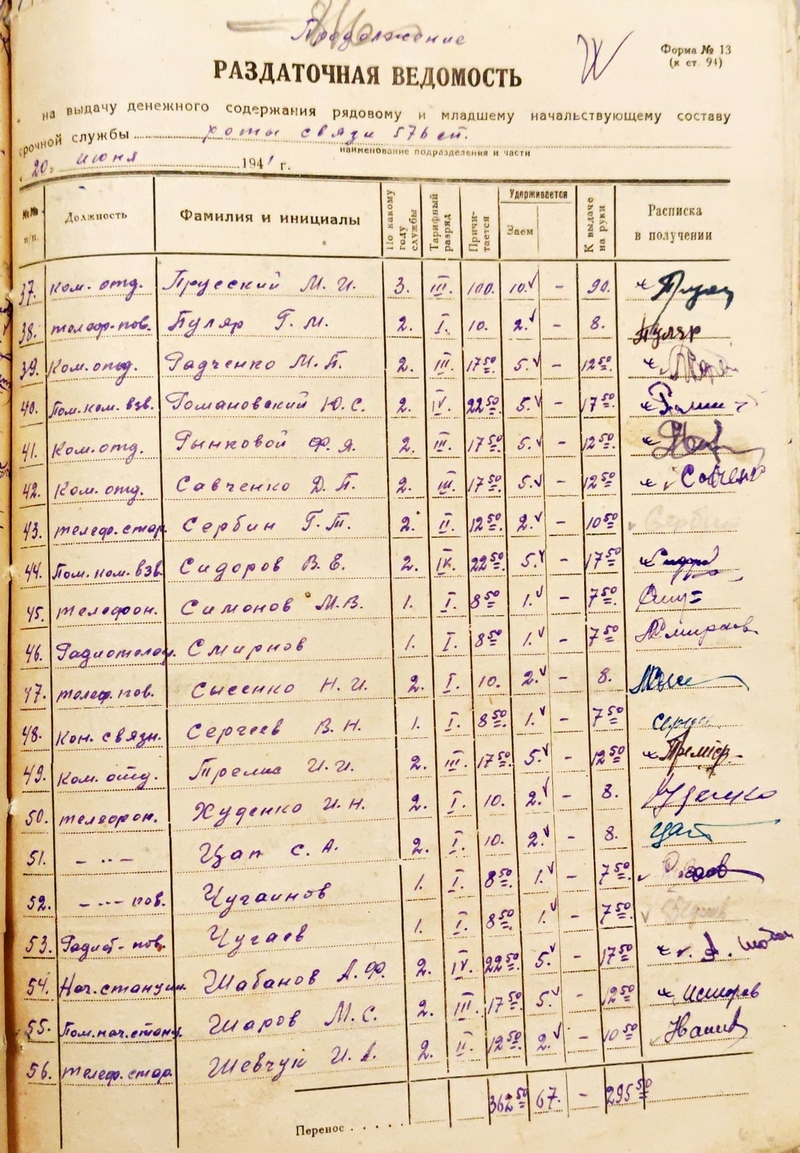 Продолжение
Форма № 13
(к ст. 94)
РАЗДАТОЧНАЯ ВЕДОМОСТЬ
на выдачу денежного содержания рядовому и младшему начальствующему составу
срочной службы роты связи 576 сп.
наименование подразделения и части
20, июня 1941 г.
№№ п/п. Должность Фамилия и инициалы По какому году службы Тарифный разряд Причитается Удерживается Заем К выдаче на руки Расписка в получении
37. Ком. отд. Прусский М. И. 3. III. 100. 10. - 90.
38. телеф-пов. Пуляр Г. М. 2. I. 10. 2. - 8. Пуляр
39. Ком. отд. Радченко М. П. 2. III. 17 50 5. - 12 50
40. Пом. ком. взв. Романовский Ю. С. 2. IV. 22 50 5. - 17 50
41. Ком. отд. Рынковой Ф. Я. 2. III. 17 50 5. - 12 50
42. Ком. отд. Савченко Д. П. 2. III. 17 50 5. - 12 50
43. телеф. стар. Сербин Г. Т. 2. II. 12 50 2. - 10 50 Сербин
44. Пом. ком. взв. Сидоров В. Е. 2. IV. 22 50 5. - 17 50
45. телефон. Симонов М. В. 1. I. 8 50 1. - 7 50
46. Смирнов 1. I. 8 50 1. - 7 50
47. телеф. пов. Сысенко Н. И. 2. I. 10. 2. - 8.
48. Кон. связн. Сергеев В. Н. 1. I. 8 50 1. - 7 50
49. Ком. отд. И. И. 2. III. 17 50 5. - 12 50
50. телефон. Худенко И. Н. 2. I. 10. 2. - 8.
51. - " - Цап С. А. 2. I. 10. 2. - 8. Цап
52. - " - пов. Чугаинов 1. I. 8 50 1. - 7 50
53. Радист-пов. Чугаев 1. I. 8 50 1. - 7 50
54. Нач. станции Шабанов А. Ф. 2. IV. 22 50 5. - 17 50
55. Пом. нач. станц. Шаров М. С. 2. III. 17 50 5. - 12 50
56. телеф. стар. Шевчук И. А. 2. II. 12 50 2. - 10 50
Перенос . . . . . 362 50 67. - 295 50